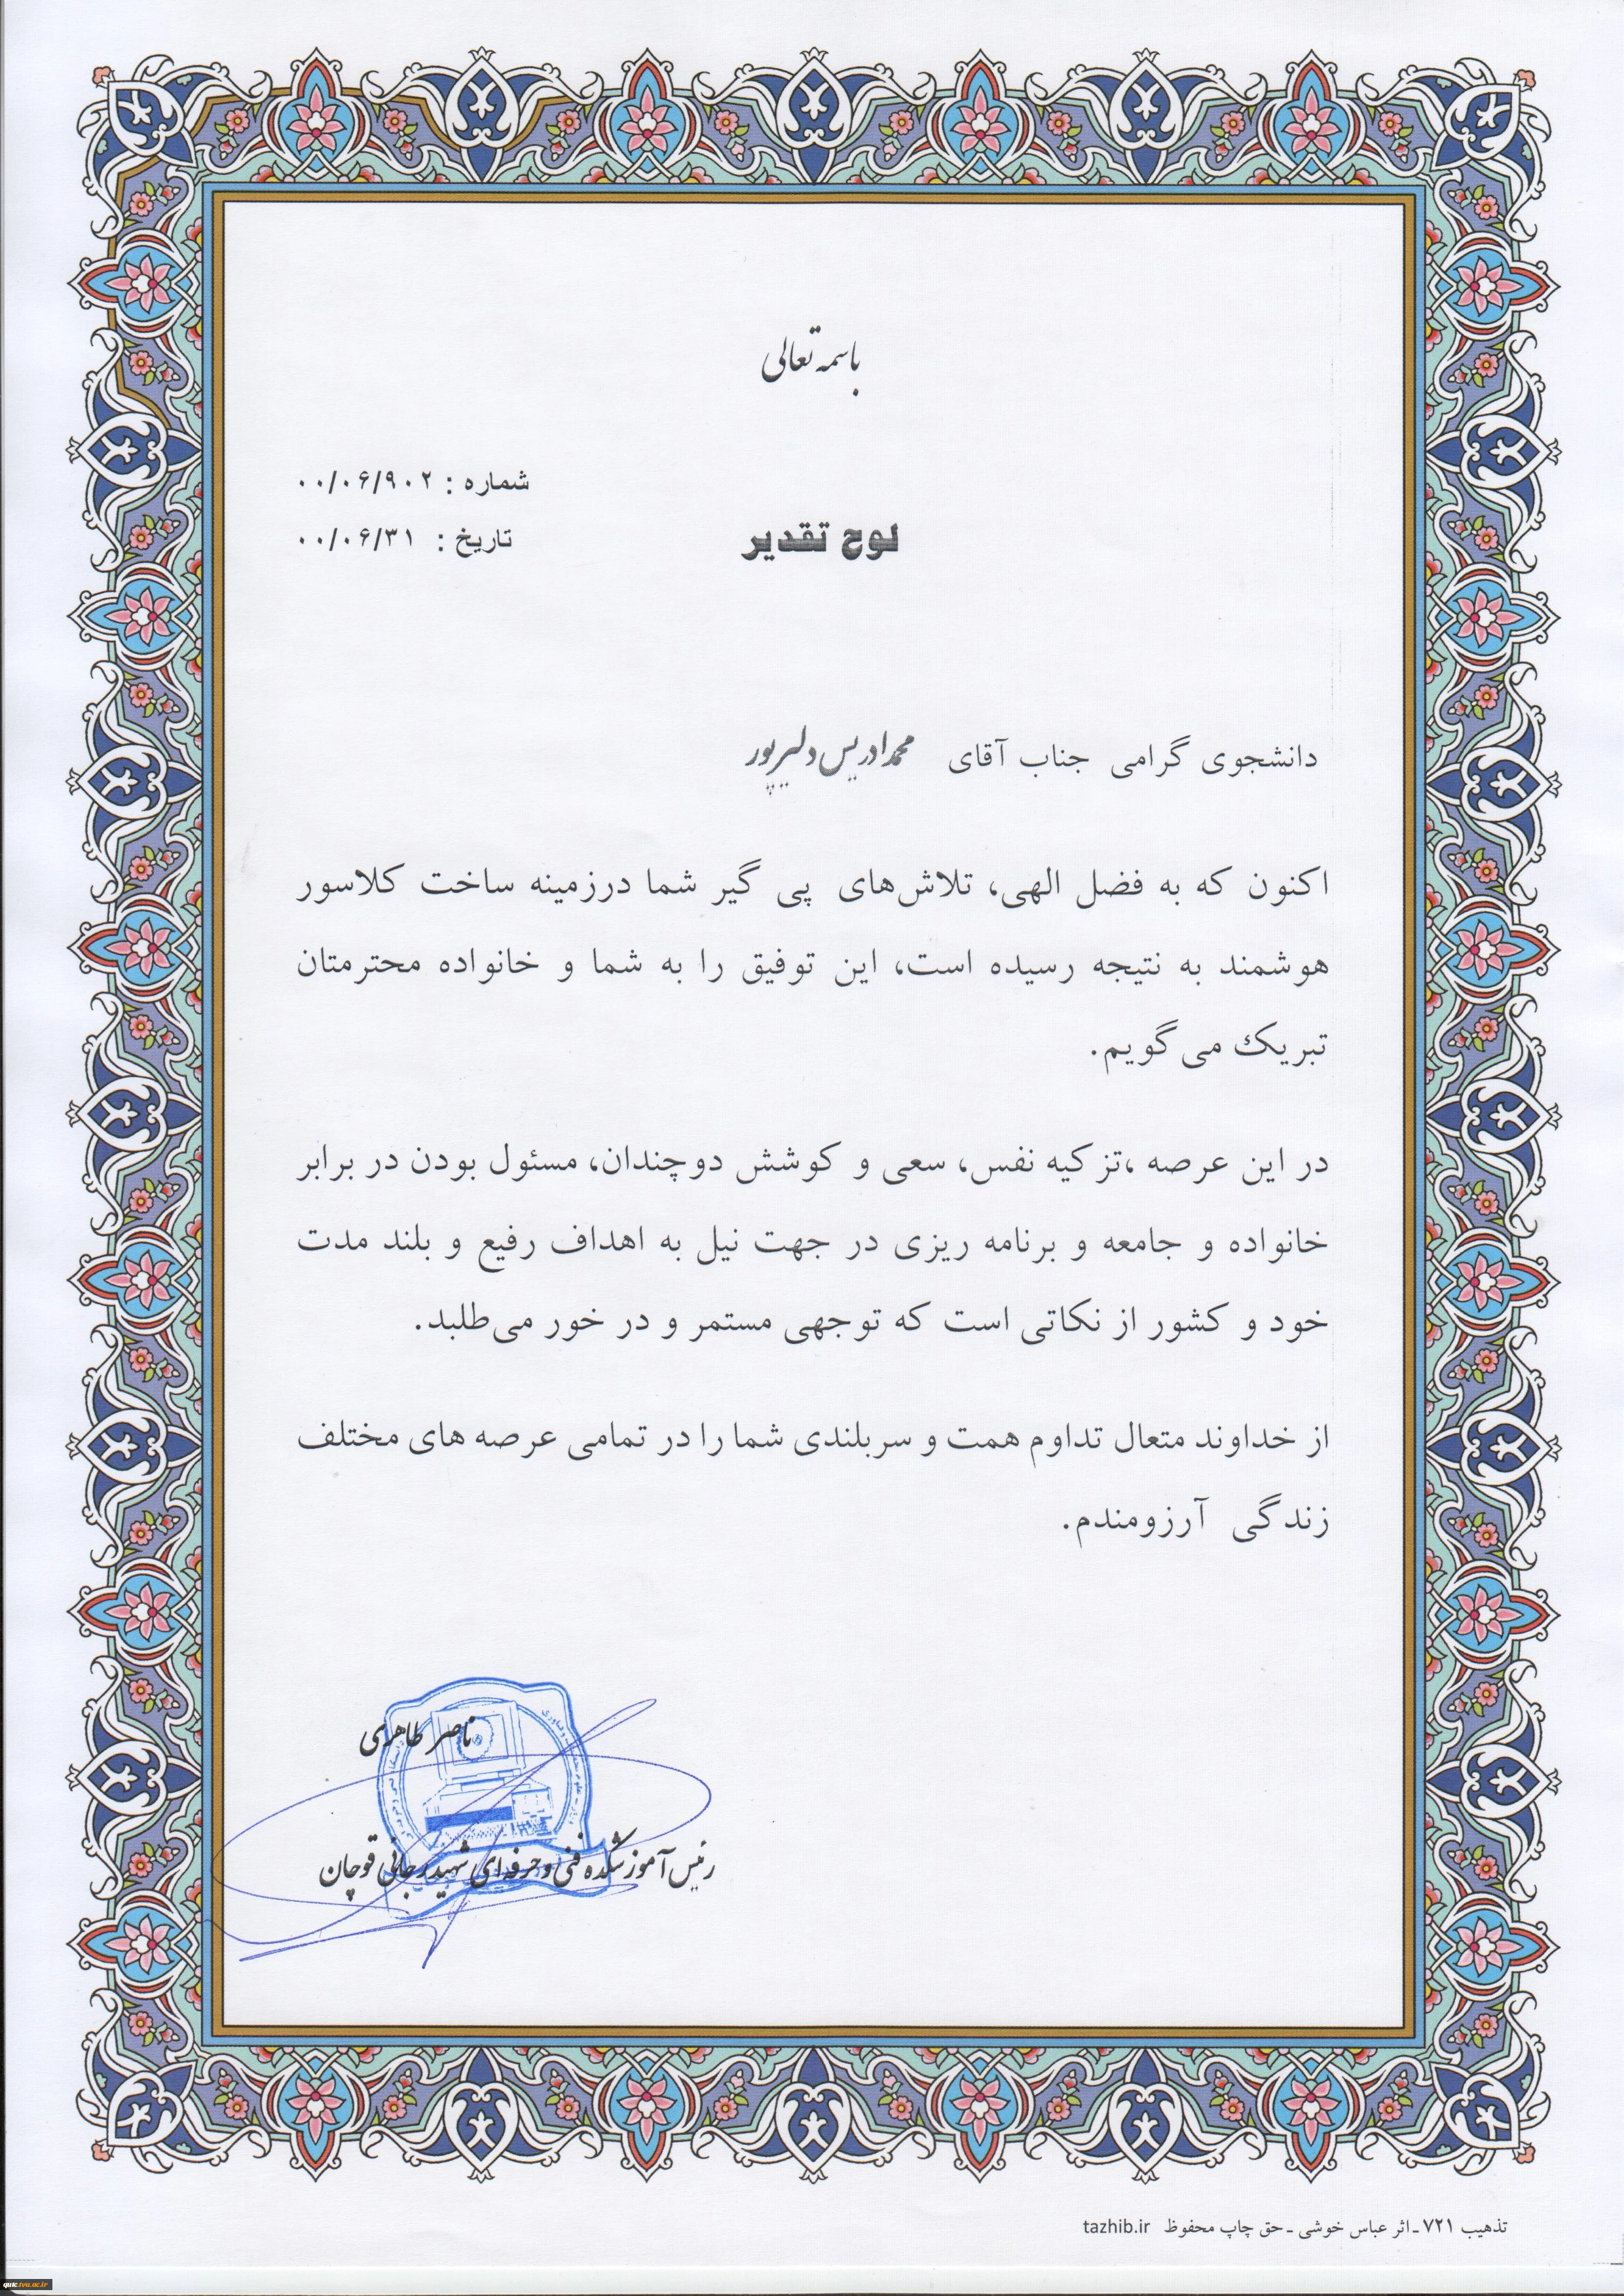 باسمه تعالی
شماره : ۰۰/۰۶/۹۰۲
تاریخ : ۰۰/۰۶/۳۱
لوح تقدیر
دانشجوی گرامی جناب آقای محمدادریس دلیرپور
اکنون که به فضل الهی، تلاش‌های پی گیر شما درزمینه ساخت کلاسور
هوشمند به نتیجه رسیده است، این توفیق را به شما و خانواده محترمتان
تبریک می‌گویم.
در این عرصه ،تزکیه نفس، سعی و کوشش دوچندان، مسئول بودن در برابر
خانواده و جامعه و برنامه ریزی در جهت نیل به اهداف رفیع و بلند مدت
خود و کشور از نکاتی است که توجهی مستمر و در خور می‌طلبد.
از خداوند متعال تداوم همت و سربلندی شما را در تمامی عرصه های مختلف
زندگی آرزومندم.
ناصر طاهری
رئیس آموزشکده فنی و حرفه‌ای شهید رجائی قوچان
تذهیب ۷۲۱ ـ اثر عباس خوشی ـ حق چاپ محفوظ tazhib.ir